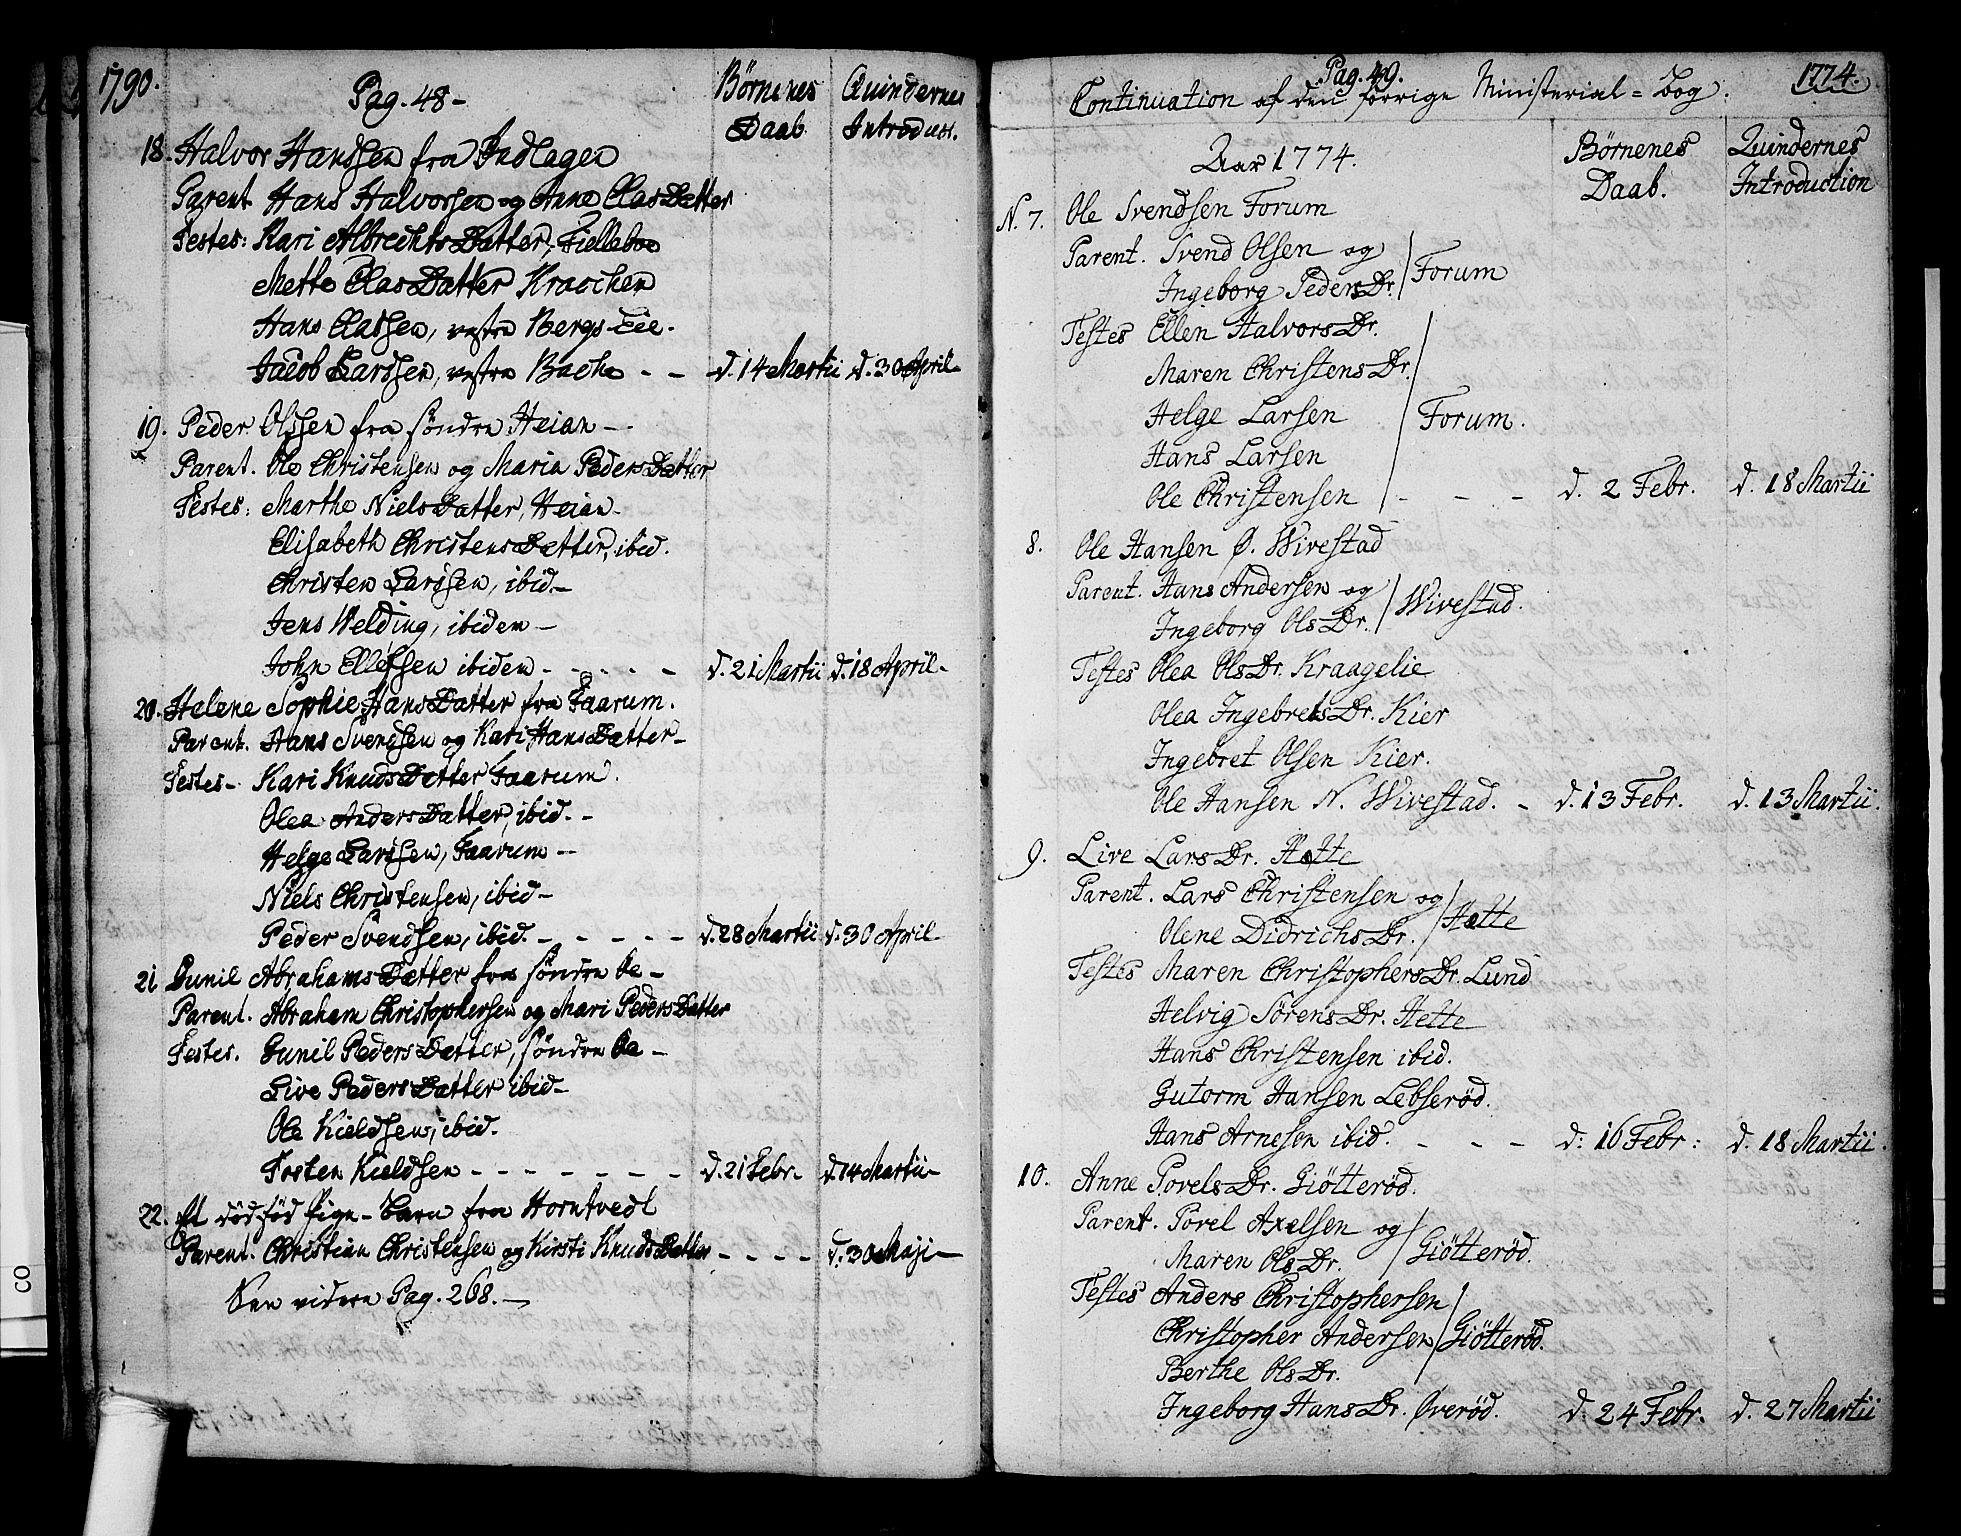 1790.
Pag. 48 -
Börnenes Daab.
Quindernes Introduct.
18. Halvor Hansen fra Indlagen
Parent Hans Halvorsen og Anne ClasDatter
Testes: Kari AlbrechtsDatter, Fielleboe
Mette ClasDatter Kraachen
Hans Classen, vestre Bergs-Eie.
Jacob Larssen, vestre Bache - - d. 14 Martii d. 30 April -
19. Peder Olssen fra söndre Heian -
Parent. Ole Christensen og Maria PedersDatter
Testes: Marthe NielsDatter, Heian -
Elisabeth ChristensDatter, ibid.
Christen Larssen, ibid -
Jens Welding, ibidem -
John Ellefsen ibidem - - - - - d. 21 Martii d. 18 April -
20. Helene Sophie HansDatter fra Faarum.
Parent. Hans Svendsen og Kari HansDatter -
Testes - Kari KnudsDatter Faarum.
Olea AndersDatter, ibid. -
Helge Larssen, Faarum -
Niels Christensen, ibid -
Peder Svendsen, ibid. - - - - - d. 28 Martii d. 30 April -
21 Gunil AbrahamsDatter fra söndre Ae -
Parent. Abraham Christophersen og Mari PedersDatter
Testes. Gunil PedersDatter, söndre Ae -
Live PedersDatter ibid -
Ole Kieldsen, ibid.
Tosten Kieldsen - - - - - - - d. 21 Febr - d. 14 Martii -
22. Et dödföd Pige-Barn fra Horntvedt
Parent. Christian Christensen og Kirsti KnudsDatter - - - - d. 30 Maji -
See videre Pag. 268. -
Pag. 49.
1774.
Continuation af den forrige Ministerial = Bog.
Aar 1774.
Börnenes Daab.
Quindernes Introduction
N. 7. Ole Svendsen Forum
Parent. Svend Olsen og
Ingeborg PedersDr. Forum
Testes Ellen HalvorsDr.
Maren ChristensDr.
Helge Larsen Forum.
Hans Larsen
Ole Christensen - - - d. 2 Febr. d. 18 Martii
8. Ole Hansen Ø. Wivestad
Parent. Hans Andersen og
Ingeborg OlsDr. Wivestad.
Testes Olea OlsDr. Kraagelie
Olea IngebretsDr. Kier
Ingebret Olsen Kier.
Ole Hansen N. Wivestad. - d. 13 Febr. d. 13 Martii.
9. Live LarsDr. Hætte
Parent. Lars Christensen og
Olene DidrichsDr. Hætte
Testes Maren ChristophersDr. Lund
Helvig SörensDr. Hette
Hans Christensen ibid.
Gutorm Hansen Lebseröd.
Hans Arnesen ibid. - - - d: 16 Febr: d. 18 Martii.
10. Anne PovelsDr. Giötteröd.
Parent. Povel Axelsen og
Maren OlsDr. Giötteröd.
Testes Anders Christophersen
Christopher Andersen Giötteröd.
Berthe OlsDr.
Ingeborg HansDr. Øveröd. d. 24 Febr. d. 27 Martii